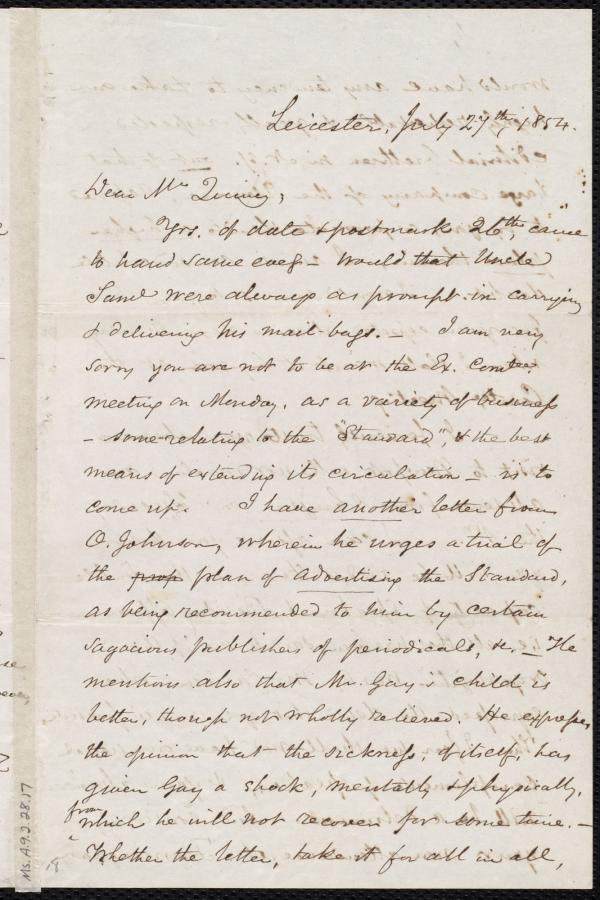 Leicester, July 27th, 1854.
Dear Mr. Quincy,
Yrs. of date & postmark 26th, came
to hand same eveg - Would that Uncle
Sam were always as prompt in carrying
& delivering his mail-bags. - I am very
sorry you are not to be at the Ex. Comtee
meeting on Monday, as a variety of business
- some relating to the "Standard", & the best
means of extending its circulation - is to
come up. I have another letter from
O. Johnson, wherein he urges a trial of
the prop plan of advertising the Standard,
as being recommended to him by certain
sagacious publishers of periodicals, &c. - He
mentions also that Mr. Gay's child is
better, though not wholly relieved. He expresses
the opinion that the sickness, of itself, has
given Gay a shock, mentally & physically,
from which he will not recover for some time. -
Whether the letter, take it for all in all,
Ms. A.9.2 28.17